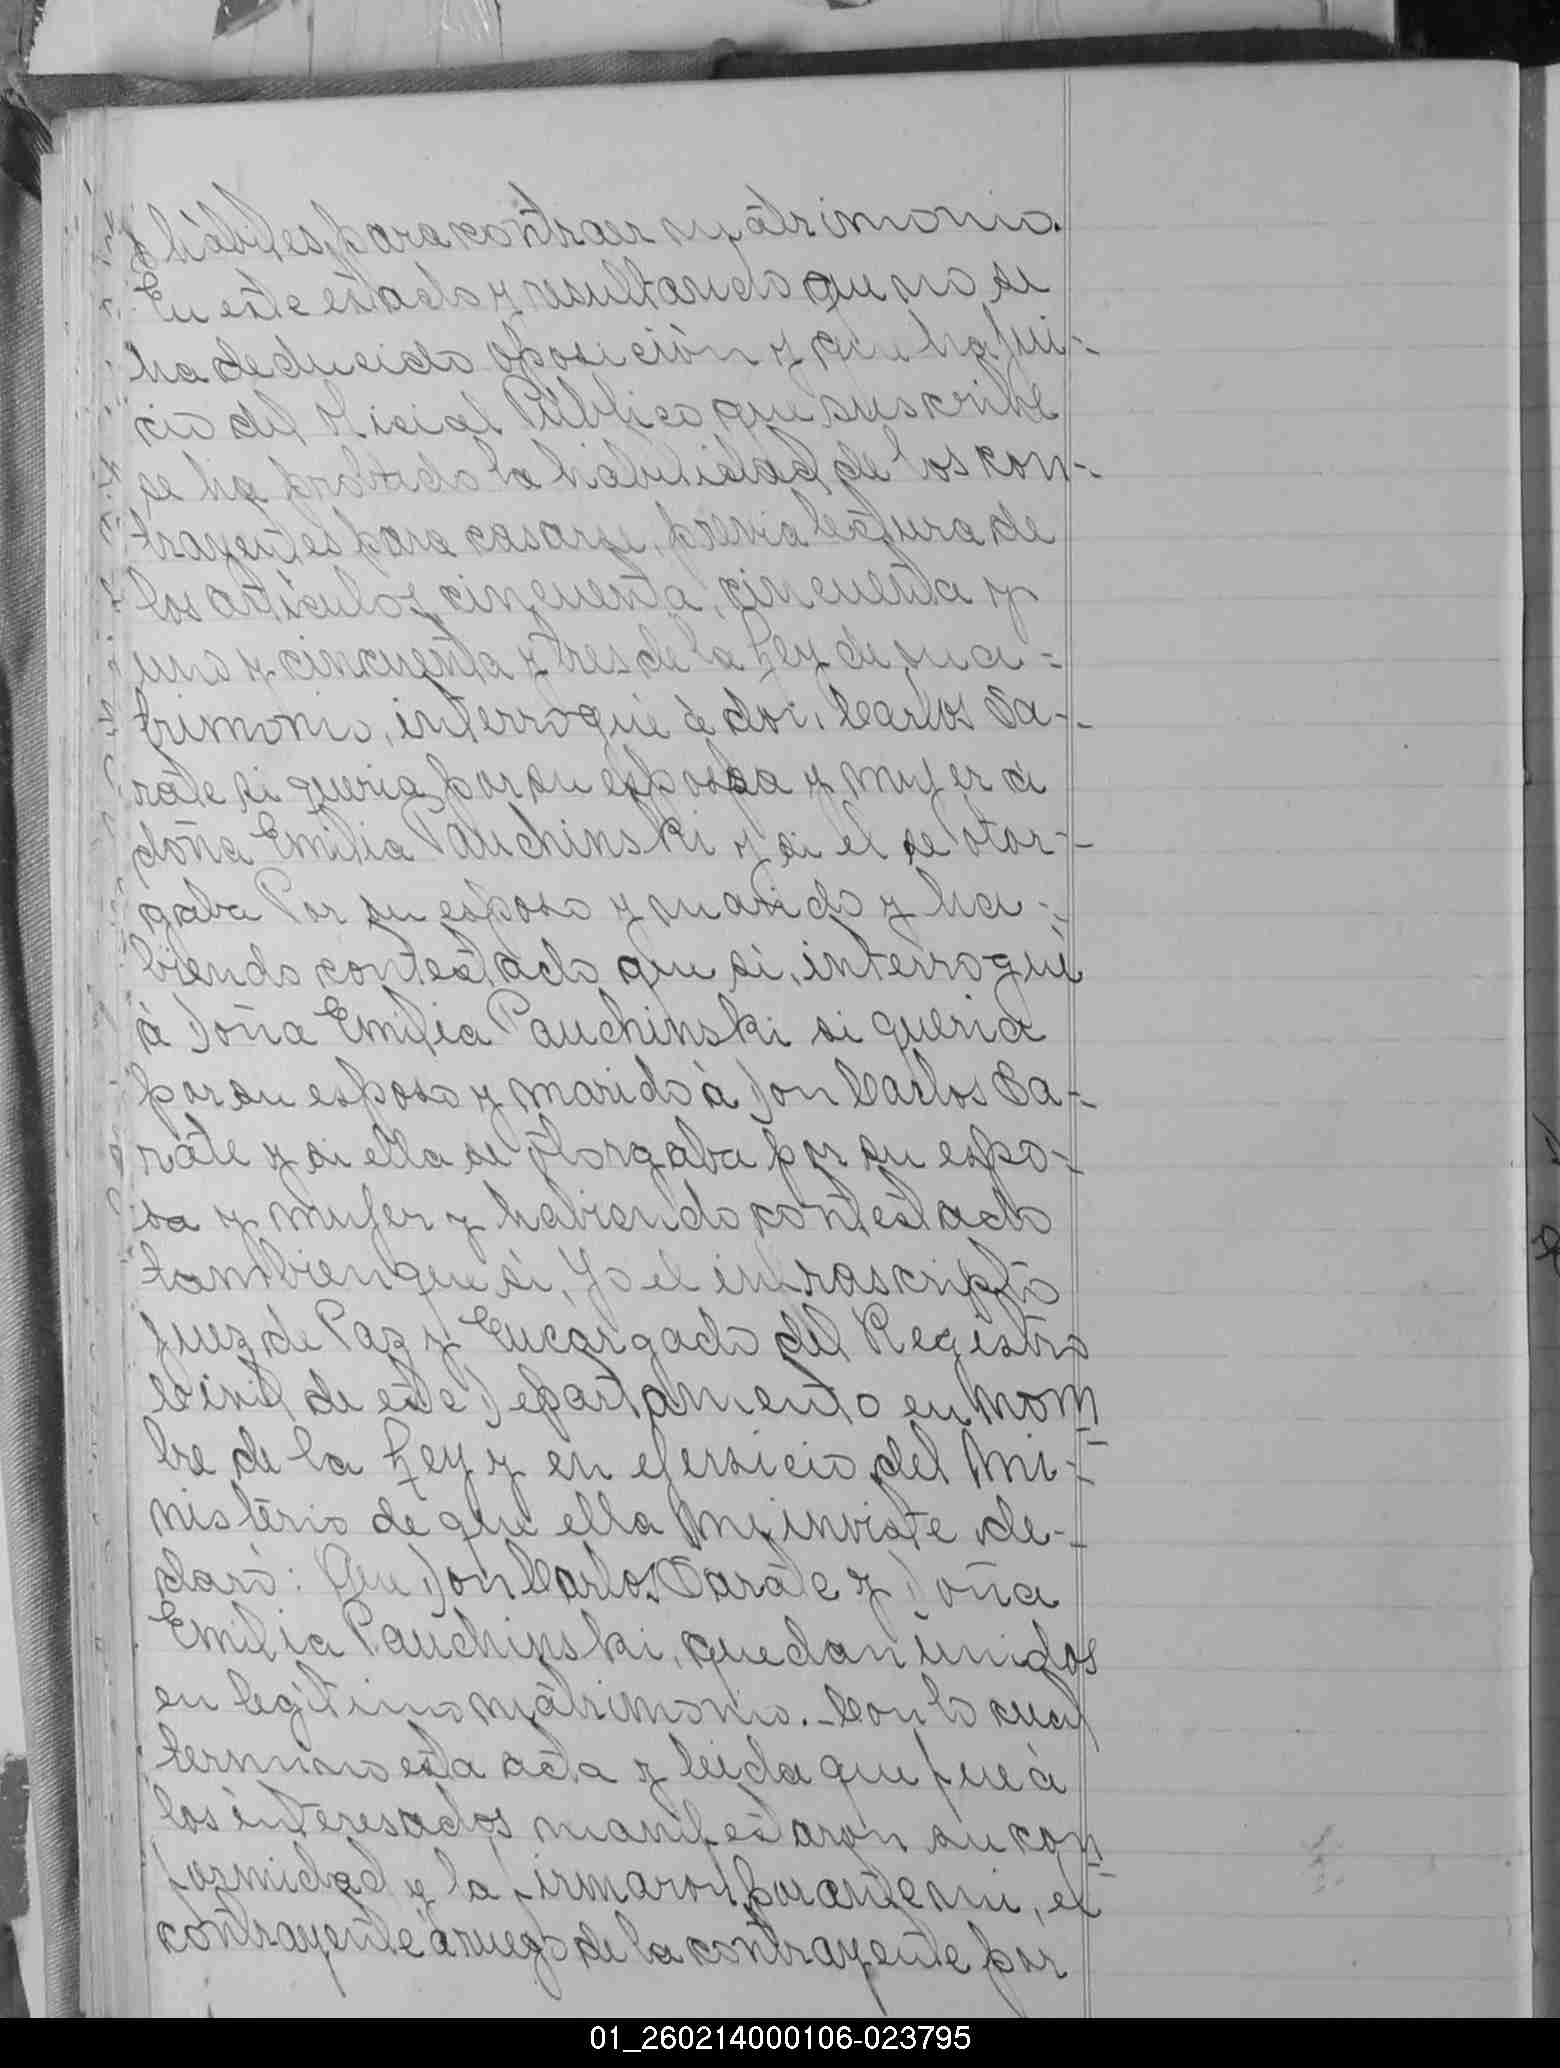 hábiles para contraer matrimonio.
En este estado y resultando que no se
ha deducido oposición y que ha jui-
cio del Oficial Público que suscribe
se ha probado la habilidad de los con-
trayentes para casarse, previa lectura de
los artículos cincuenta, cincuenta y
uno y cincuenta y tres de la Ley de ma-
trimonio, interrogué à don Carlos Sa-
rate si queria por su esposa y mujer à
doña Emilia Pauchinski y si el se otor-
gaba Por su esposo y marido y ha-
biendo contestado que si, interrogué
à Doña Emilia Pauchinski si queria
por su esposo y marido à Don Carlos Sa-
rate y si ella se otorgaba por su espo-
sa y mujer y habiendo contestado
tambien que si, Yo el infrascripto
Juez de Paz y Encargado del Registro
Civil de este Departamento en nom
bre de la Ley y en ejersicio del Mi-
nistério de que ella me inviste de-
claro: Que Don Carlos Sarate y Doña
Emilia Pauchinski, quedan unidos
en legitimo matrimonio.- Con lo cual
termino esta acta y leida que fue à
los interesados manifestaron su con
formidad y la firmaron por ante mi, el
contrayente à ruego de la contrayente por
01_260214000106-023795